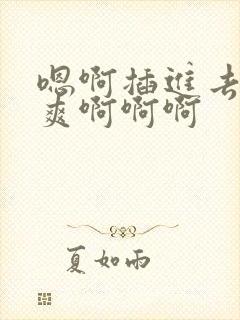 嗯啊插进去
爽啊啊啊
夏如雨